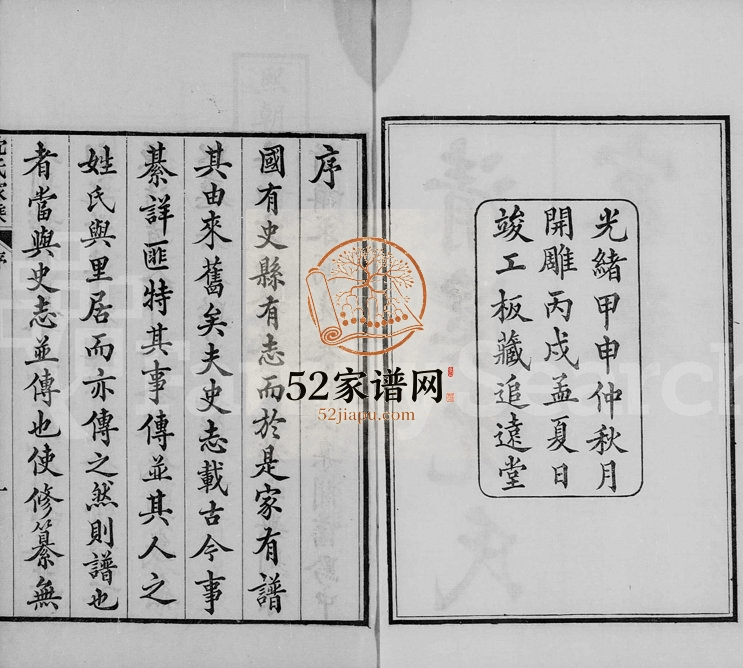 光緒甲申仲秋月
開雕丙戍孟夏日
竣工板藏追遠堂
序
國有史縣有志而於是家有譜
其由來舊矣夫史志載古今事
綦詳匪特其事傳並其人之
姓氏與里居而亦傳之然則譜也
者當與史志並傳也使修纂無
序
一
52家谱网
52jiapu.com